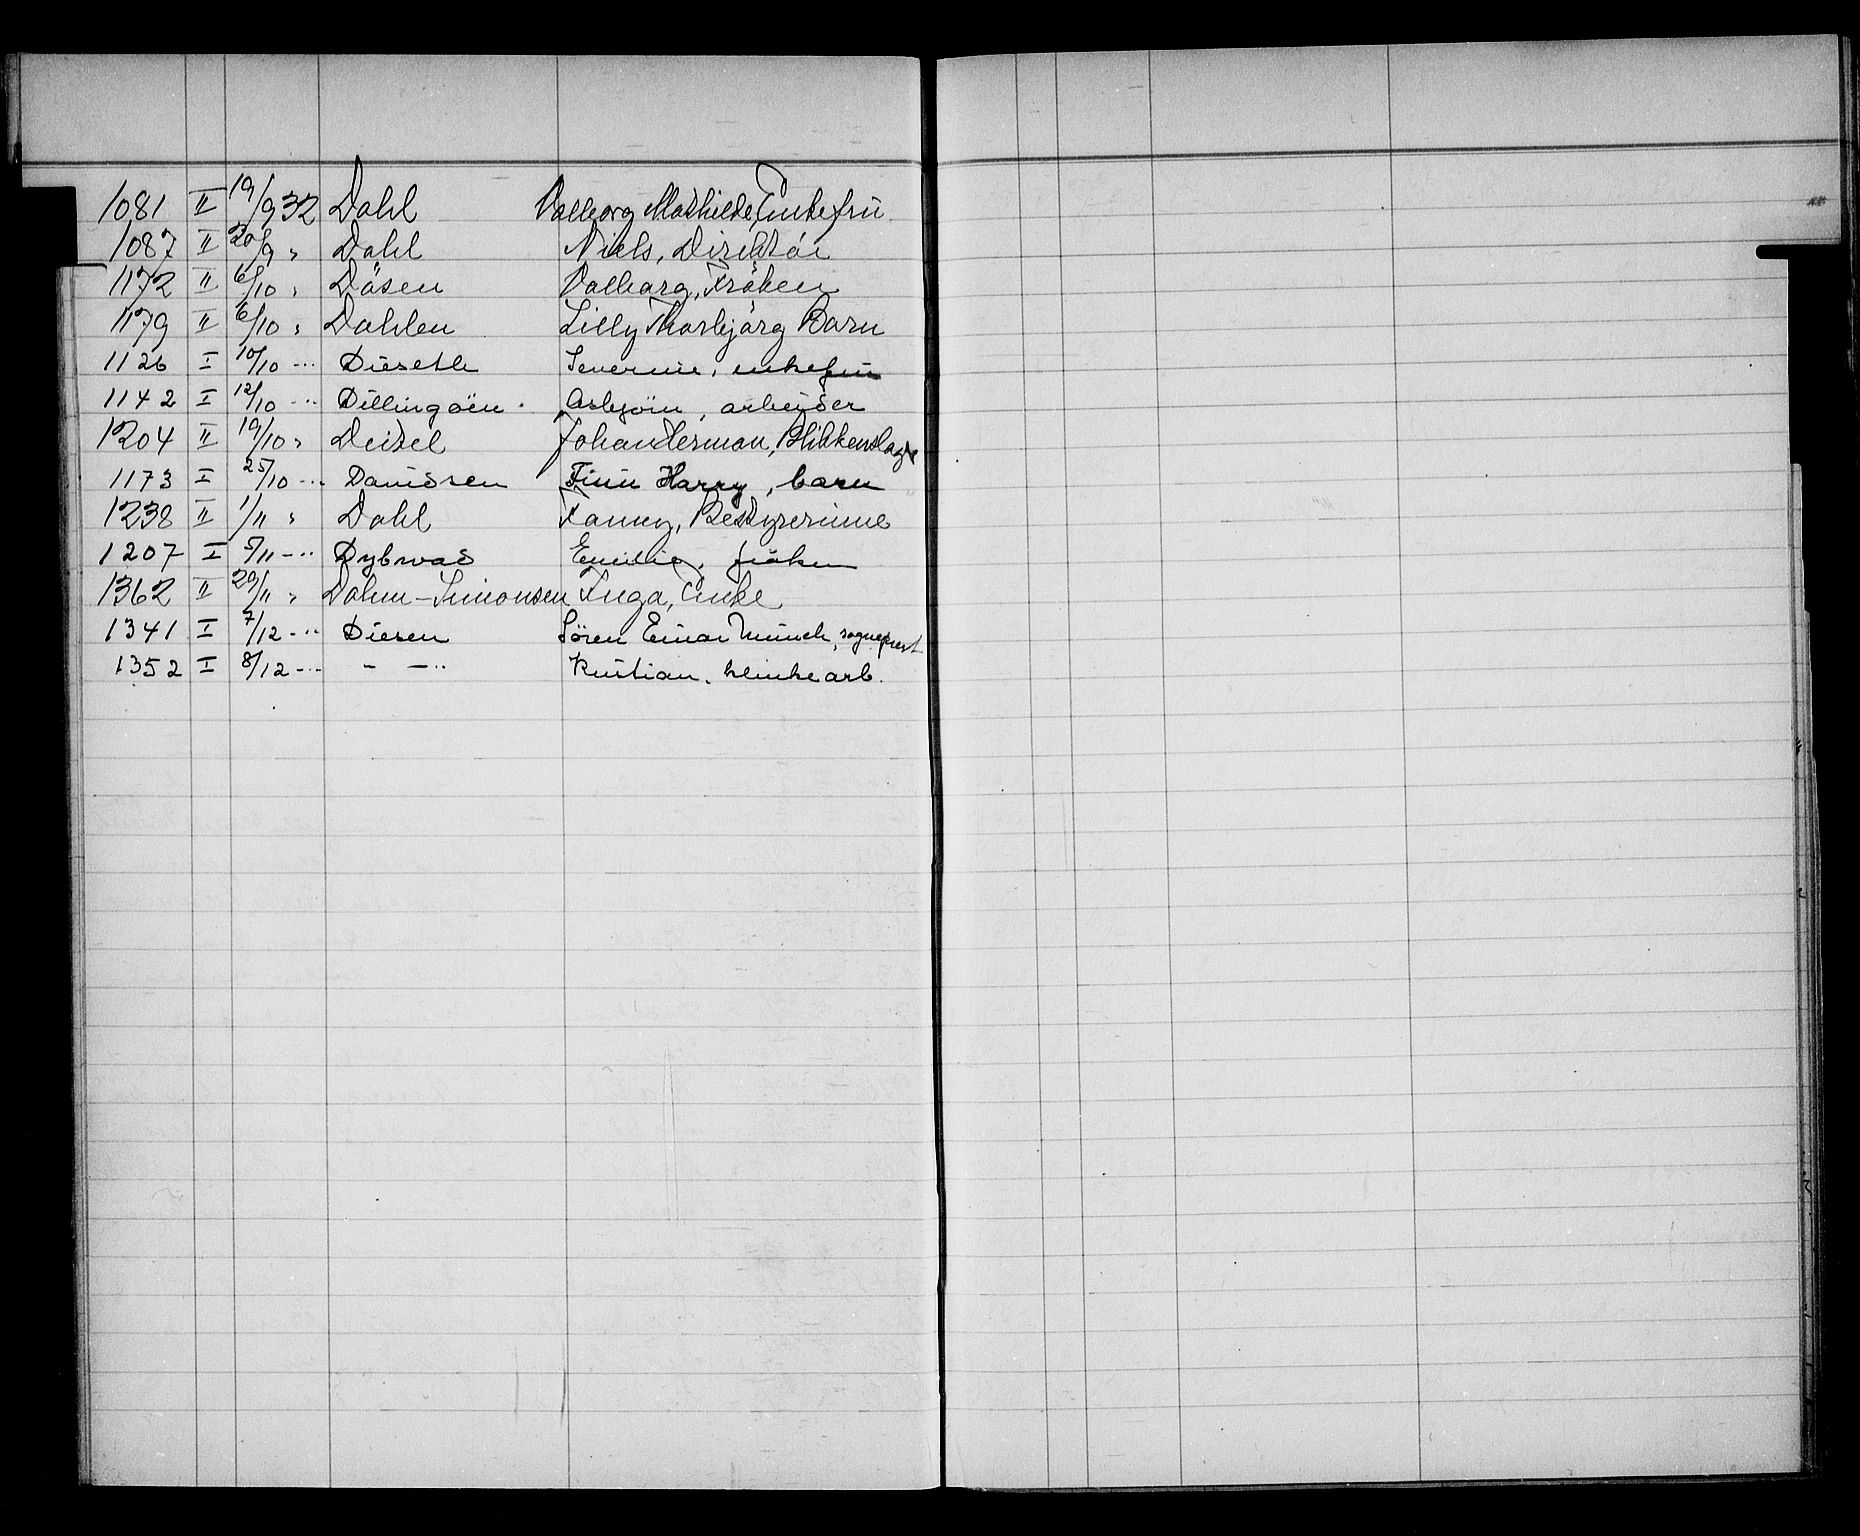 1081 II 19/9 32 Dahl Valborg Mathilde, Enkefru
1087 II 20/9 " Dahl Niels, Direktör
1172 II 6/10 " Däsen Valborg, Fröken
1179 II 6/10 " Dahlen Lilly Thorbjörg Barn
1126 I 10/10 -"- Dieseth Severine, enkefru
1142 I 12/10 -"- Dillingöen Asbjörn, arbeider
1204 II 19/10 " Deisel Johan Herman, Blikkenslager
1173 I 25/10 -"- Davidsen Finn Harry, barn
1238 II 1/11 " Dahl Fanny, Bestyrerinne
1207 I 5/11 -"- Dybwad Emilie, fröken
1362 II 29/11 " Dahm-Simonsen Inga, Enke
1341 I 7/12 -"- Diesen Sören Einar Munch, sogneprest
1352 I 8/12 -"- - -"- Kristian, kleinkearb.